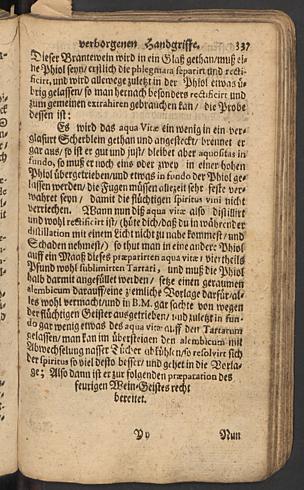 verborgenen Handgriffe. 337
Dieser Brantewein wird in ein Glaß gethan/muß ei-
ne Phiol seyn/ erstlich die phlegmata separirt und rectifi-
ficirt, und wird allewege zuletzt in der Phiol etwas ü-
brig gelassen/ so man hernach besonders rectificirt und
zum gemeinen extrahiren gebrauchen kan/ die Probe
dessen ist:
Es wird das aqua vitæ ein wenig in ein ver-
glasurt Scherblein gethan und angesteckt/ brennet er
gar aus/ so ist er gut und just/ bleibet aber aquositas in
fundo, so muß er noch eins oder zwey in einer hohen
Phiol übergetrieben/und etwas in fundo der Phiol ge-
lassen werden/ die Fugen müssen allezeit sehr feste ver-
wahret seyn/ damit die flüchtigen spiritus vini nicht
verriechen. Wann nun diß aqua vitæ also distillirt
und wohl rectificiret ist/ (hüte dich/daß du in währender
distillation mit einem Licht nicht zu nahe kommest/ und
Schaden nehmest/) so thut man in eine andere Phiol
auff ein Maaß dieses præparirten aqua vitæ/ viertheils
Pfund wohl sublimirten Tartari, und muß die Phiol
halb darmit angefüllet werden/ setze einen geraumen
alembicum darauff/eine ziemliche Vorlage darfür/al-
les wohl vermacht/und in B.M. gar sachte von wegen
der flüchtigen Geister ausgetrieben/ und zuletzt in fun-
do gar wenig etwas des aqua vitæ auff den Tartarum
gelassen/ man kan im übersteigen den alembicum mit
Abwechselung nasser Tücher abkühlen/so resolvirt sich
der spiritus so viel desto besser/ und gehet in die Vorla-
ge; Also dann ist er zur folgenden præparation des
feurigen Wein-Geistes recht
bereitet.
Yy Nun